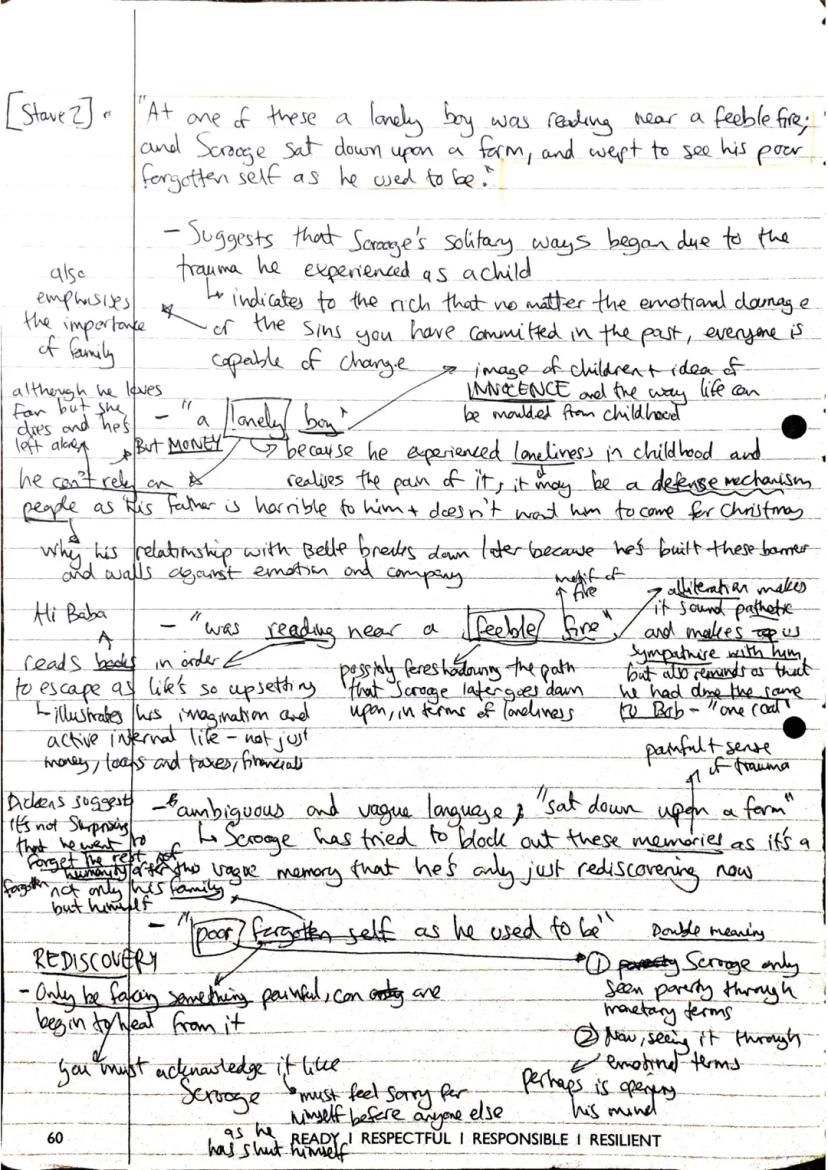 [Stave 2] •
"At one of these a lonely boy was reading near a feeble fire;
and Scrooge sat down upon a form, and wept to see his poor
forgotten self as he used to be."
- Suggests that Scrooge's solitary ways began due to the
trauma he experienced as a child
↳ indicates to the rich that no matter the emotional damage
or the sins you have committed in the past, everyone is
capable of change
also
emphasises
the importance
of family
image of children + idea of
INNOCENCE and the way life can
be moulded from childhood
although he loves
Fan but she
dies and he's
left alone
- "a lonely boy"
But MONEY
↳ because he experienced loneliness in childhood and
realises the pain of it, it may be a defense mechanism
he can't rely on
people as his father is horrible to him + doesn't want him to come for Christmas
why his relationship with Belle breaks down later because he's built these barrier
and walls against emotion and company
motif of
fire
Ali Baba
- "was reading near a feeble fire"
alliteration makes
it sound pathetic
and makes us
sympathise with him,
but also reminds us that
he had done the same
to Bob - "one coal"
reads books in order
to escape as life's so upsetting
↳ illustrates his imagination and
active internal life - not just
money, loans and taxes, financials
possibly foreshadowing the path
that Scrooge later goes down
upon, in terms of loneliness
painful + sense
of trauma
- ambiguous and vague language; "sat down upon a form"
↳ Scrooge has tried to block out these memories as it's a
vague memory that he's only just rediscovering now
Dickens suggests
it's not surprising
that he went to
forget the rest of
humanity after he
forgotten not only his family
but himself
- "poor forgotten self as he used to be"
Double meaning
① Scrooge only
seen poverty through
monetary terms
② Now, seeing it through
emotional terms
perhaps is opening
his mind
REDISCOVERY
- Only be facing something painful, can are
begin to heal from it
you must acknowledge it like
Scrooge
must feel sorry for
himself before anyone else
as he
has shut himself
60
READY I RESPECTFUL I RESPONSIBLE I RESILIENT